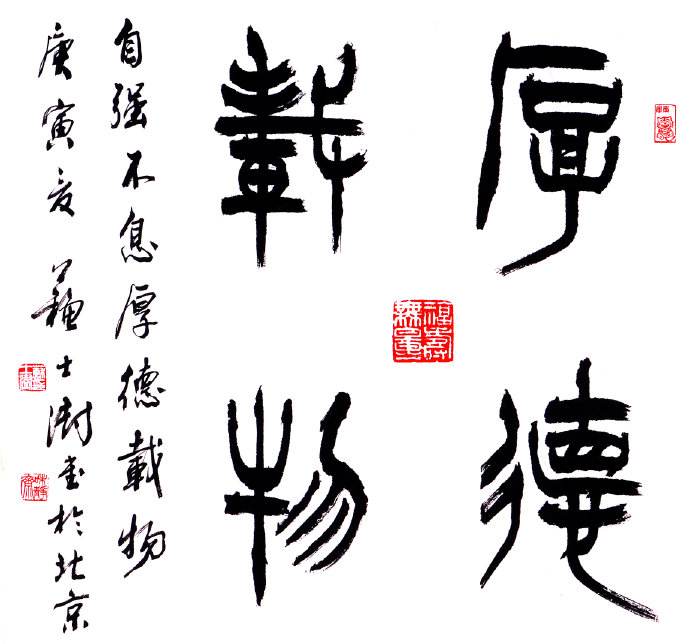 厚德
載物
自强不息厚德載物
庚寅夏蘇士澍書於北京